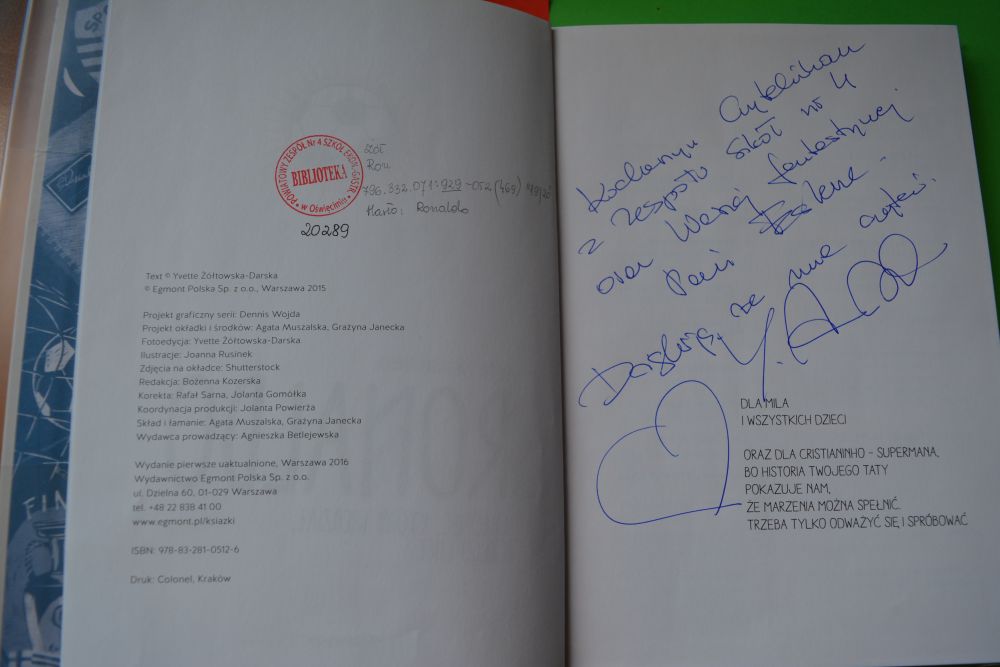 POWIATOWY ZESPÓŁ Nr 4 SZKÓŁ EKON.-GASTR.
BIBLIOTEKA
w Oświęcimiu
żół
Ron
796.332.071:929-052(469)"19/20"
Hasło: Ronaldo
20289
Text © Yvette Żółtowska-Darska
© Egmont Polska Sp. z o.o., Warszawa 2015
Projekt graficzny serii: Dennis Wojda
Projekt okładki i środków: Agata Muszalska, Grażyna Janecka
Fotoedycja: Yvette Żółtowska-Darska
Ilustracje: Joanna Rusinek
Zdjęcia na okładce: Shutterstock
Redakcja: Bożenna Kozerska
Korekta: Rafał Sarna, Jolanta Gomółka
Koordynacja produkcji: Jolanta Powierża
Skład i łamanie: Agata Muszalska, Grażyna Janecka
Wydawca prowadzący: Agnieszka Betlejewska
Wydanie pierwsze uaktualnione, Warszawa 2016
Wydawnictwo Egmont Polska Sp. z o.o.
ul. Dzielna 60, 01-029 Warszawa
tel. +48 22 838 41 00
www.egmont.pl/ksiazki
ISBN: 978-83-281-0512-6
Druk: Colonel, Kraków
Kochanym Czytelnikom
z zespołu szkół nr 4
oraz Waszej fantastycznej
Pani
Dziękuję, że mnie czytacie.
DLA MILA
I WSZYSTKICH DZIECI
ORAZ DLA CRISTIANINHO – SUPERMANA,
BO HISTORIA TWOJEGO TATY
POKAZUJE NAM,
ŻE MARZENIA MOŻNA SPEŁNIĆ.
TRZEBA TYLKO ODWAŻYĆ SIĘ I SPRÓBOWAĆ